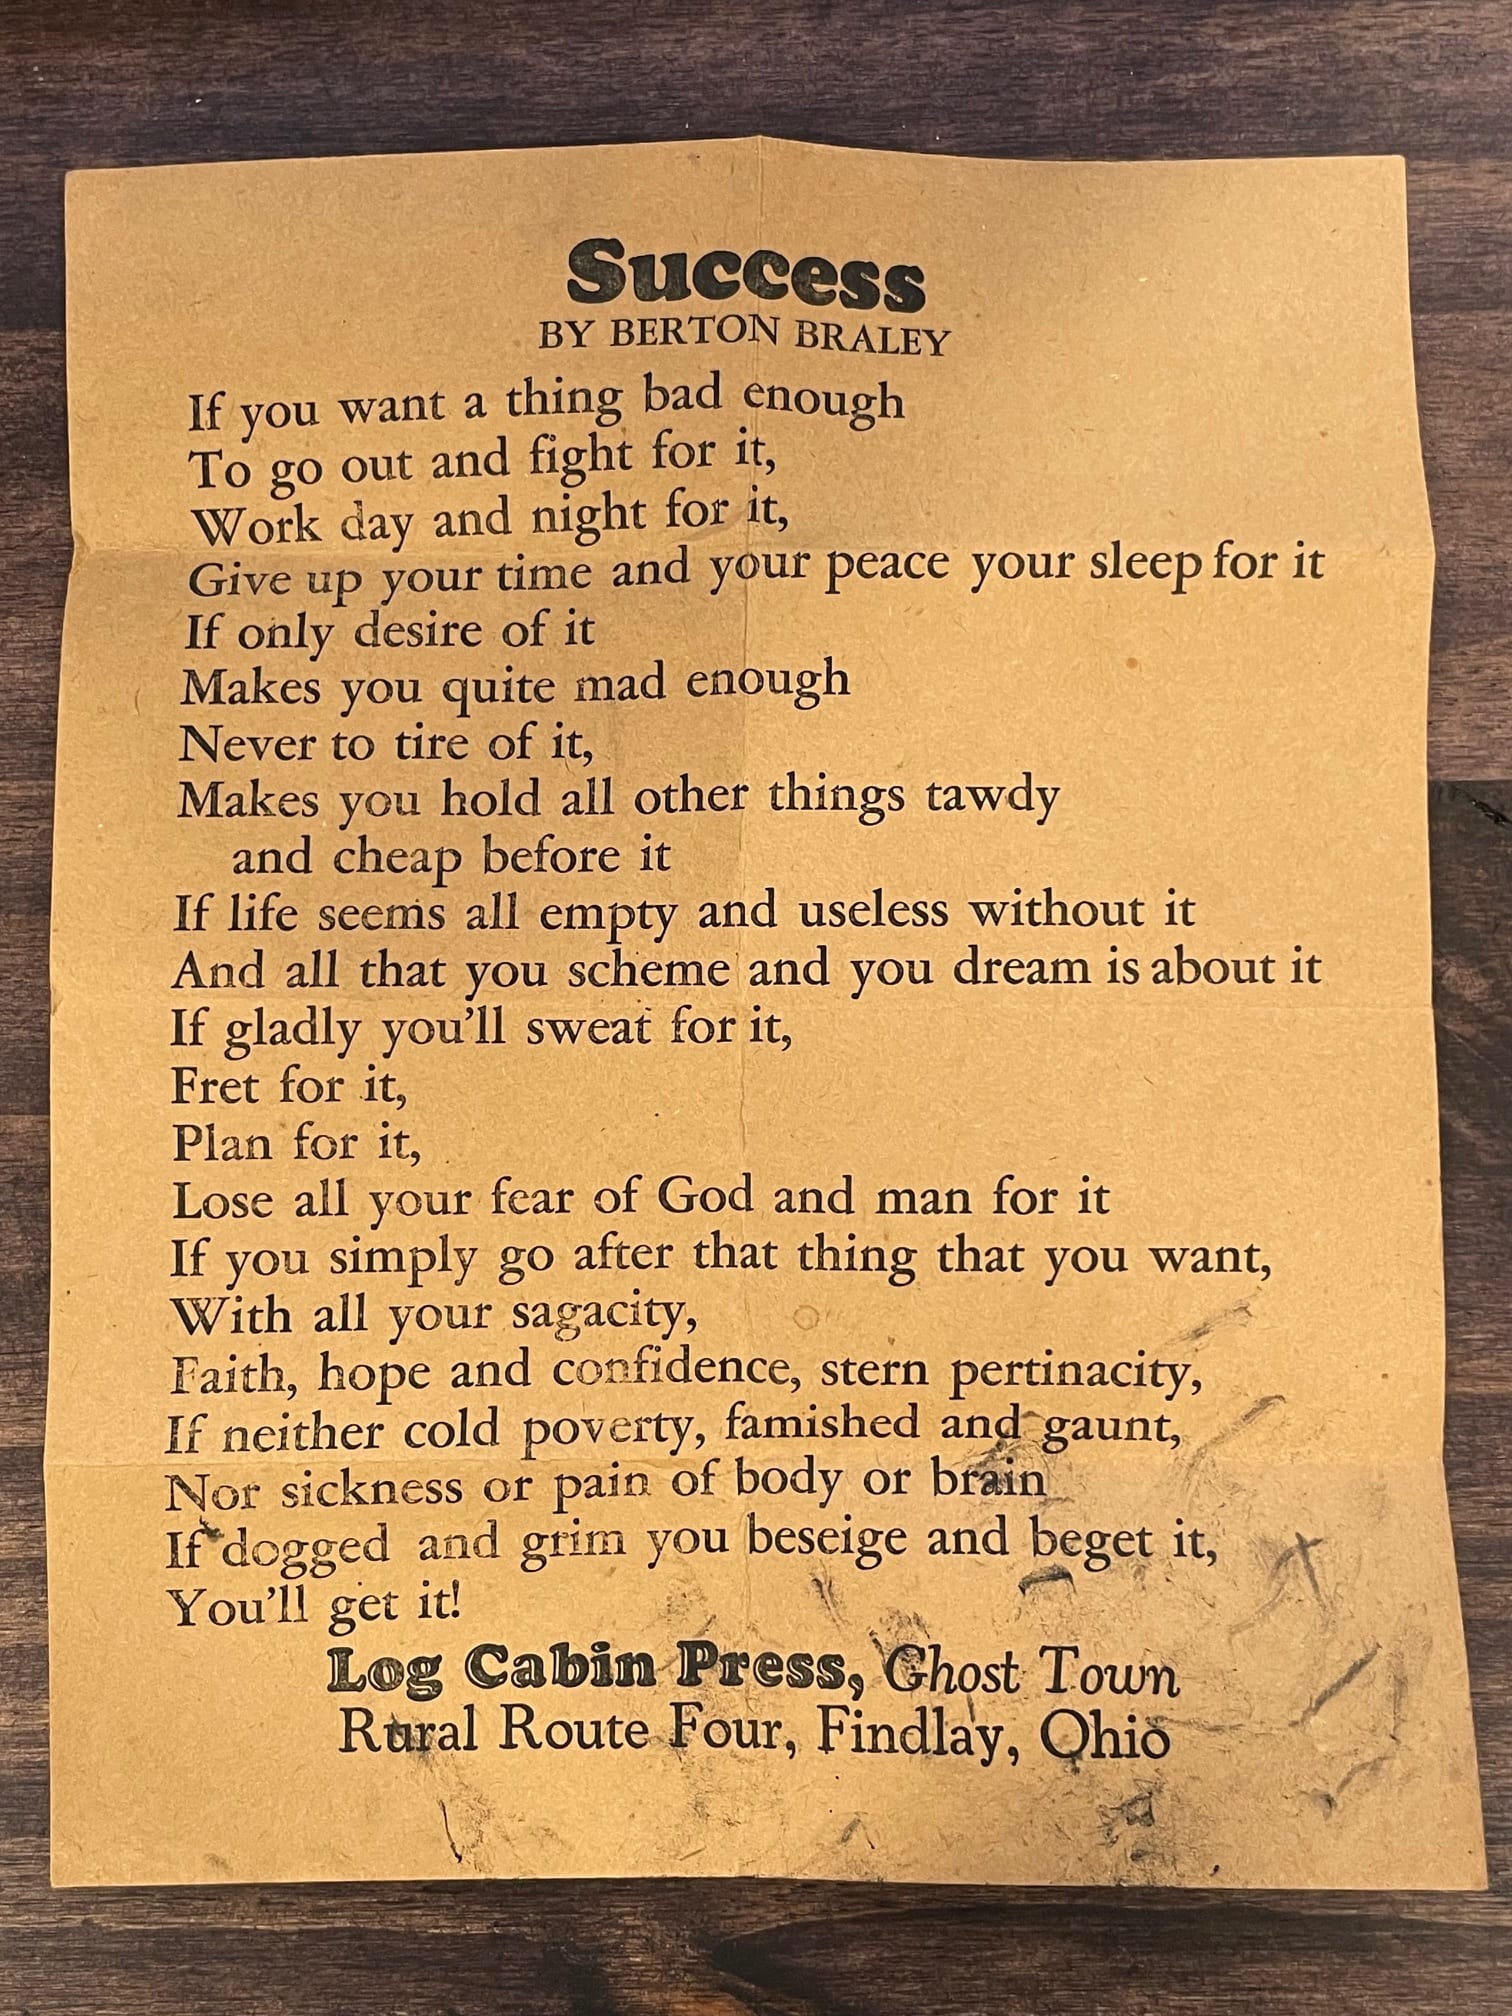 Success
BY BERTON BRALEY
If you want a thing bad enough
To go out and fight for it,
Work day and night for it,
Give up your time and your peace your sleep for it
If only desire of it
Makes you quite mad enough
Never to tire of it,
Makes you hold all other things tawdy
and cheap before it
If life seems all empty and useless without it
And all that you scheme and you dream is about it
If gladly you'll sweat for it,
Fret for it,
Plan for it,
Lose all your fear of God and man for it
If you simply go after that thing that you want,
With all your sagacity,
Faith, hope and confidence, stern pertinacity,
If neither cold poverty, famished and gaunt,
Nor sickness or pain of body or brain
If dogged and grim you beseige and beget it,
You'll get it!
Log Cabin Press, Ghost Town
Rural Route Four, Findlay, Ohio